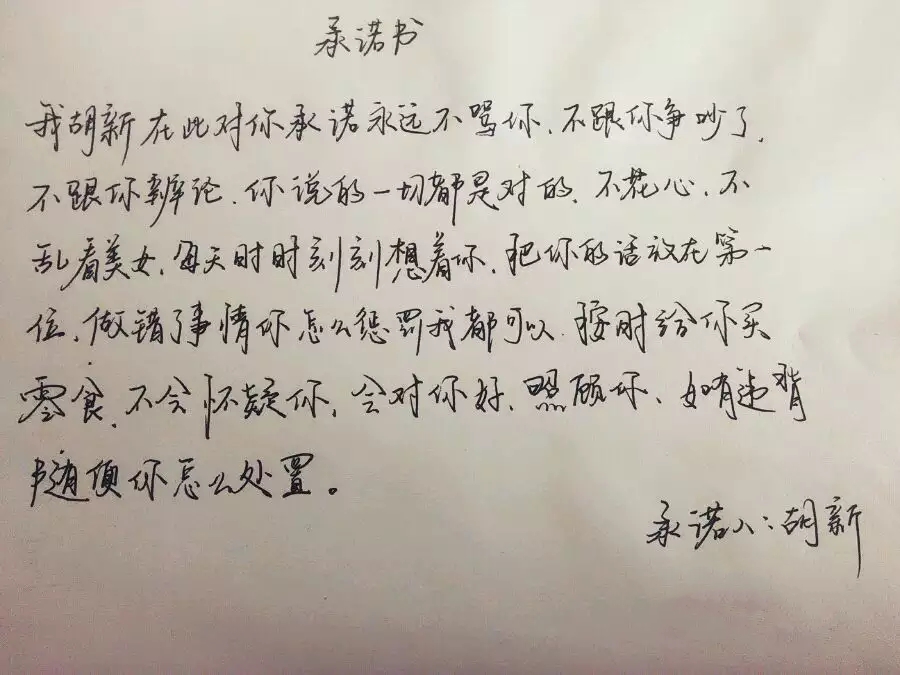 承诺书
我胡新在此对你承诺永远不骂你、不跟你争吵了、
不跟你辨论、你说的一切都是对的、不花心、不
乱看美女、每天时时刻刻想着你、把你的话放在第一
位、做错了事情你怎么惩罚我都可以、按时给你买
零食、不会怀疑你、会对你好、照顾你、如有违背
随便你怎么处置。
承诺人：胡新